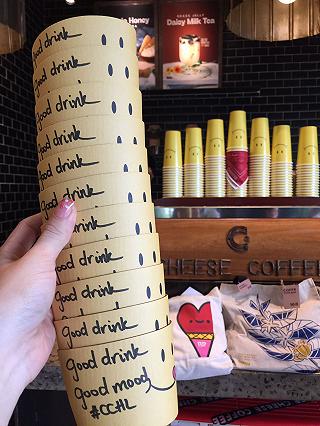 Honey
GRASS JELLY
Daisy Milk Tea
good drink
good drink
good drink
good drink
good drink
good drink
good drink
good drink
good drink
good drink
good drink
good mood
#CCHL
CHEESE COFFEE